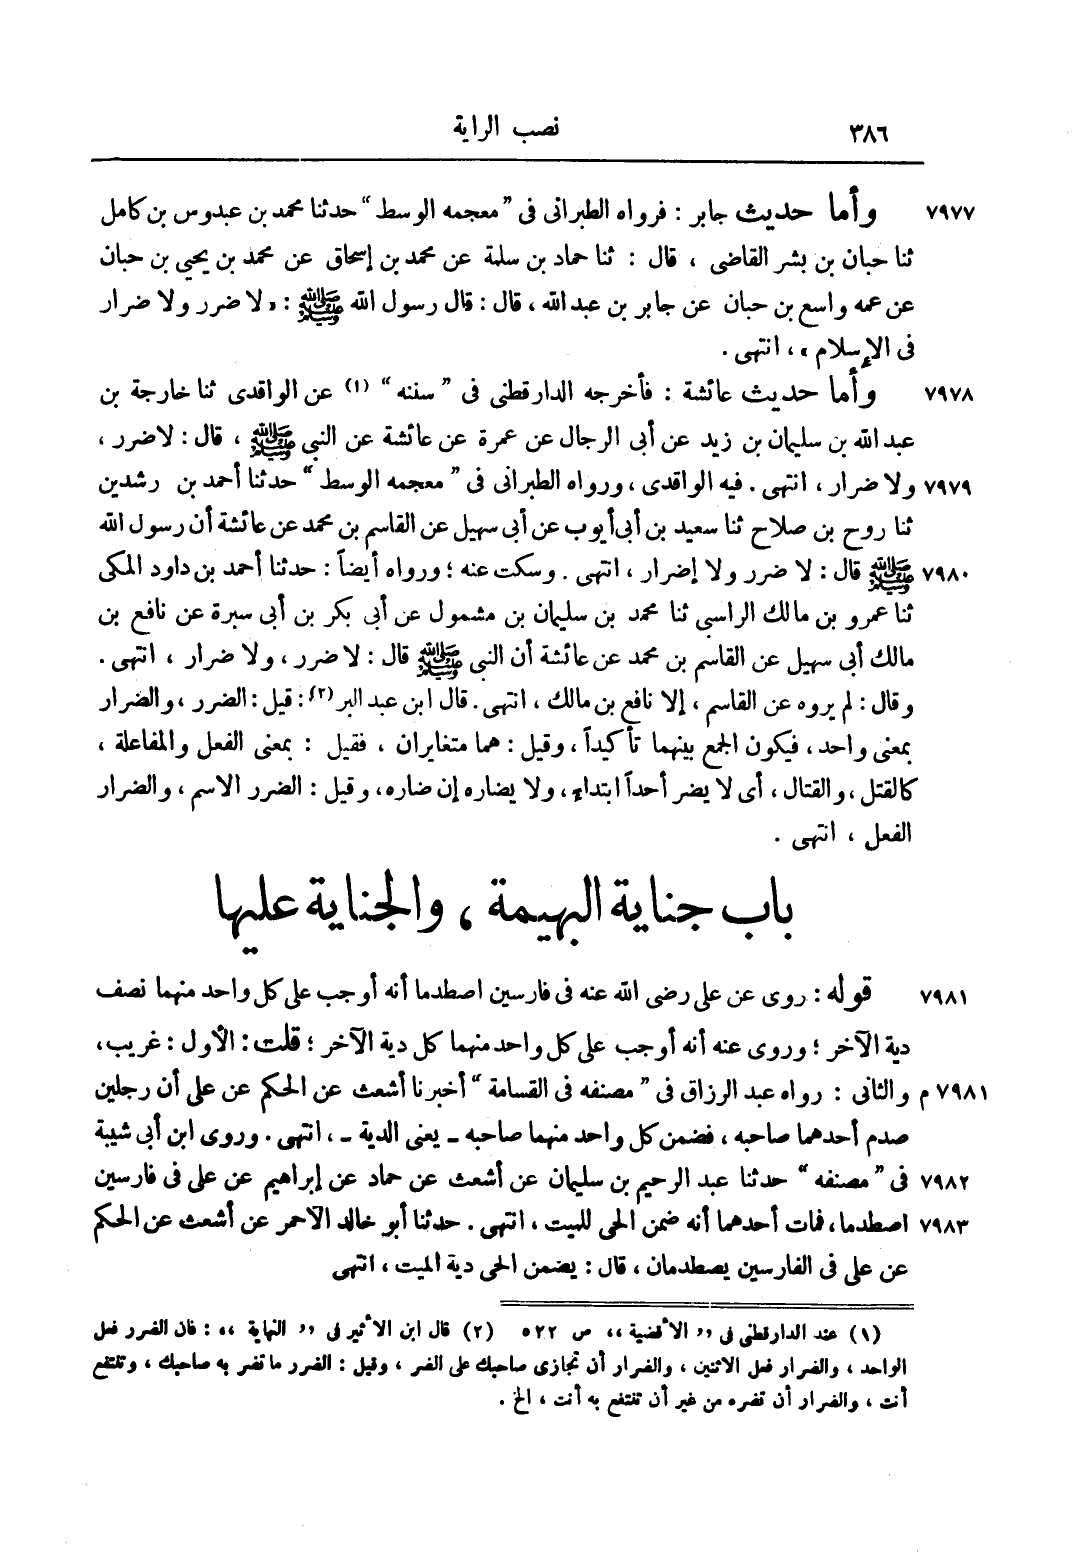 ٣٨٦ نصب الراية
٧٩٧٧ وأما حديث جابر : فرواه الطبرانى فى ” معجمه الوسط “ حدثنا محمد بن عبدوس بن كامل
ثنا حبان بن بشر القاضى ، قال : ثنا حماد بن سلمة عن محمد بن إسحاق عن محمد بن يحيى بن حبان
عن عمه واسع بن حبان عن جابر بن عبد الله ، قال : قال رسول الله ﷺ : « لا ضرر ولا ضرار
فى الإسلام » ، انتهى .
٧٩٧٨ وأما حديث عائشة : فأخرجه الدارقطنى فى ” سننه “ (١) عن الواقدى ثنا خارجة بن
عبد الله بن سليمان بن زيد عن أبى الرجال عن عمرة عن عائشة عن النبى ﷺ ، قال : لاضرر ،
٧٩٧٩ ولا ضرار ، انتهى . فيه الواقدى ، ورواه الطبرانى فى ” معجمه الوسط “ حدثنا أحمد بن رشدين
ثنا روح بن صلاح ثنا سعيد بن أبى أيوب عن أبى سهيل عن القاسم بن محمد عن عائشة أن رسول الله
٧٩٨٠ ﷺ قال : لا ضرر ولا إضرار ، انتهى . وسكت عنه ؛ ورواه أيضاً : حدثنا أحمد بن داود المكى
ثنا عمرو بن مالك الراسبى ثنا محمد بن سليمان بن مشمول عن أبى بكر بن أبى سبرة عن نافع بن
مالك أبى سهيل عن القاسم بن محمد عن عائشة أن النبى ﷺ قال : لا ضرر ، ولا ضرار ، انتهى .
وقال : لم يروه عن القاسم ، إلا نافع بن مالك ، انتهى . قال ابن عبد البر (٢) : قيل : الضرر ، والضرار
بمعنى واحد ، فيكون الجمع بينهما تأكيداً ، وقيل : هما متغايران ، فقيل : بمعنى الفعل والمفاعلة ،
كالقتل ، والقتال ، أى لا يضر أحداً ابتداء ، ولا يضاره إن ضاره ، وقيل : الضرر الاسم ، والضرار
الفعل ، انتهى .
باب جناية البهيمة ، والجناية عليها
٧٩٨١ قوله : روى عن على رضى الله عنه فى فارسين اصطدما أنه أوجب على كل واحد منهما نصف
دية الآخر ؛ وروى عنه أنه أوجب على كل واحد منهما كل دية الآخر ؛ قلت : الأول : غريب ،
٧٩٨١ م والثانى : رواه عبد الرزاق فى ” مصنفه فى القسامة “ أخبرنا أشعث عن الحكم عن على أن رجلين
صدم أحدهما صاحبه ، فضمن كل واحد منهما صاحبه - يعنى الدية - ، انتهى . وروى ابن أبى شيبة
٧٩٨٢ فى ” مصنفه “ حدثنا عبد الرحيم بن سليمان عن أشعث عن حماد عن إبراهيم عن على فى فارسين
٧٩٨٣ اصطدما ، فمات أحدهما أنه ضمن الحى للميت ، انتهى . حدثنا أبو خالد الأحمر عن أشعث عن الحكم
عن على فى الفارسين يصطدمان ، قال : يضمن الحى دية الميت ، انتهى
(١) عند الدارقطنى فى ” الأقضية “ ص ٥٢٢ (٢) قال ابن الأثير فى ” النهاية “ : فان الضرر فعل
الواحد ، والضرار فعل الاثنين ، والضرار أن تجازى صاحبك على الضر ، وقيل : الضرر ما تضر به صاحبك ، وتنتفع
أنت ، والضرار أن تضره من غير أن تنتفع به أنت ، الخ .